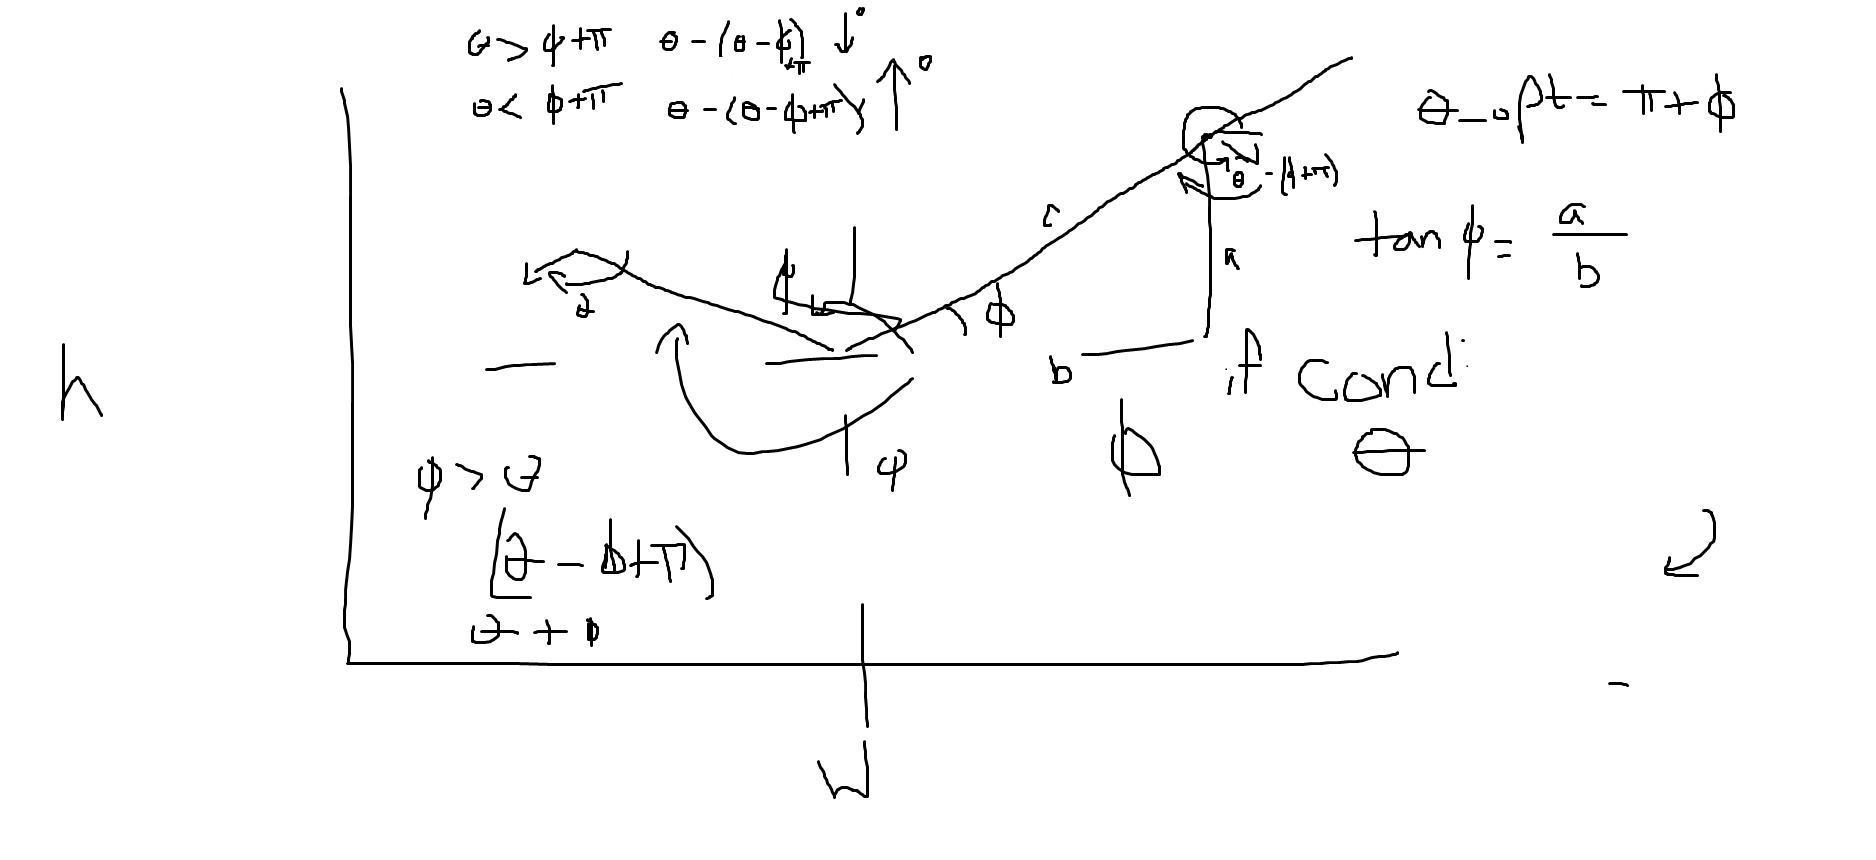 θ > ϕ+π θ-(θ-ϕ+π) ↓°
θ < ϕ+π θ-(θ-ϕ+π) ↑°
θ_opt = π+ϕ
θ-(ϕ+π)
tan ϕ = a/b
c
a
ϕ
ϕ
θ
b
if cond
h
ϕ
ϕ
θ
φ > θ
(θ - ϕ+π)
θ + ϕ
W